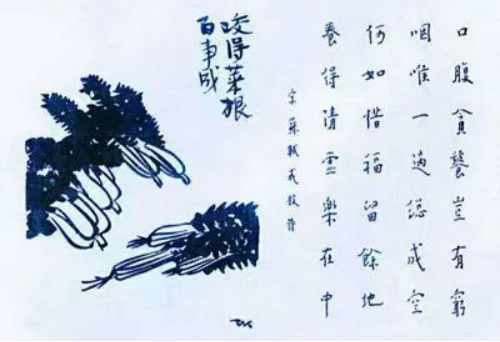 口腹貪饕豈有窮
咽喉一過總成空
何如惜福留餘地
養得清虛樂在中
宋蘇軾戒殺詩
咬得菜根
百事成